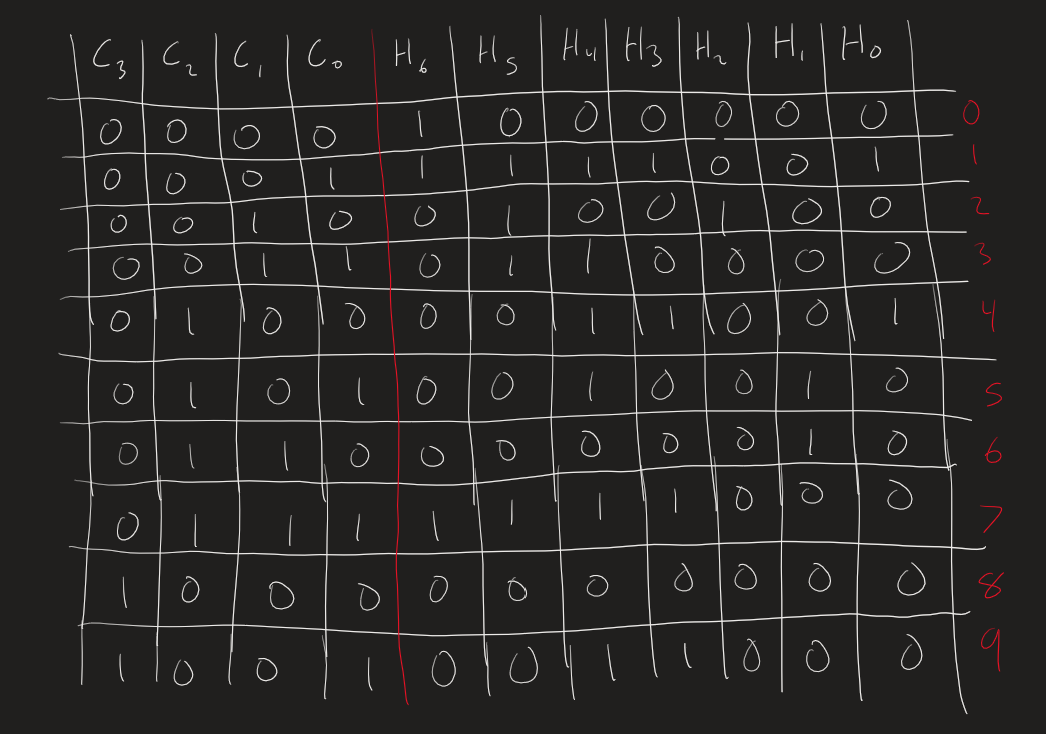 C₃ C₂ C₁ C₀ H₆ H₅ H₄ H₃ H₂ H₁ H₀
0 0 0 0 1 0 0 0 0 0 0 0
0 0 0 1 1 1 1 1 0 0 1 1
0 0 1 0 0 1 0 0 1 0 0 2
0 0 1 1 0 1 1 0 0 0 0 3
0 1 0 0 0 0 1 1 0 0 1 4
0 1 0 1 0 0 1 0 0 1 0 5
0 1 1 0 0 0 0 0 0 1 0 6
0 1 1 1 1 1 1 1 0 0 0 7
1 0 0 0 0 0 0 0 0 0 0 8
1 0 0 1 0 0 1 1 0 0 0 9